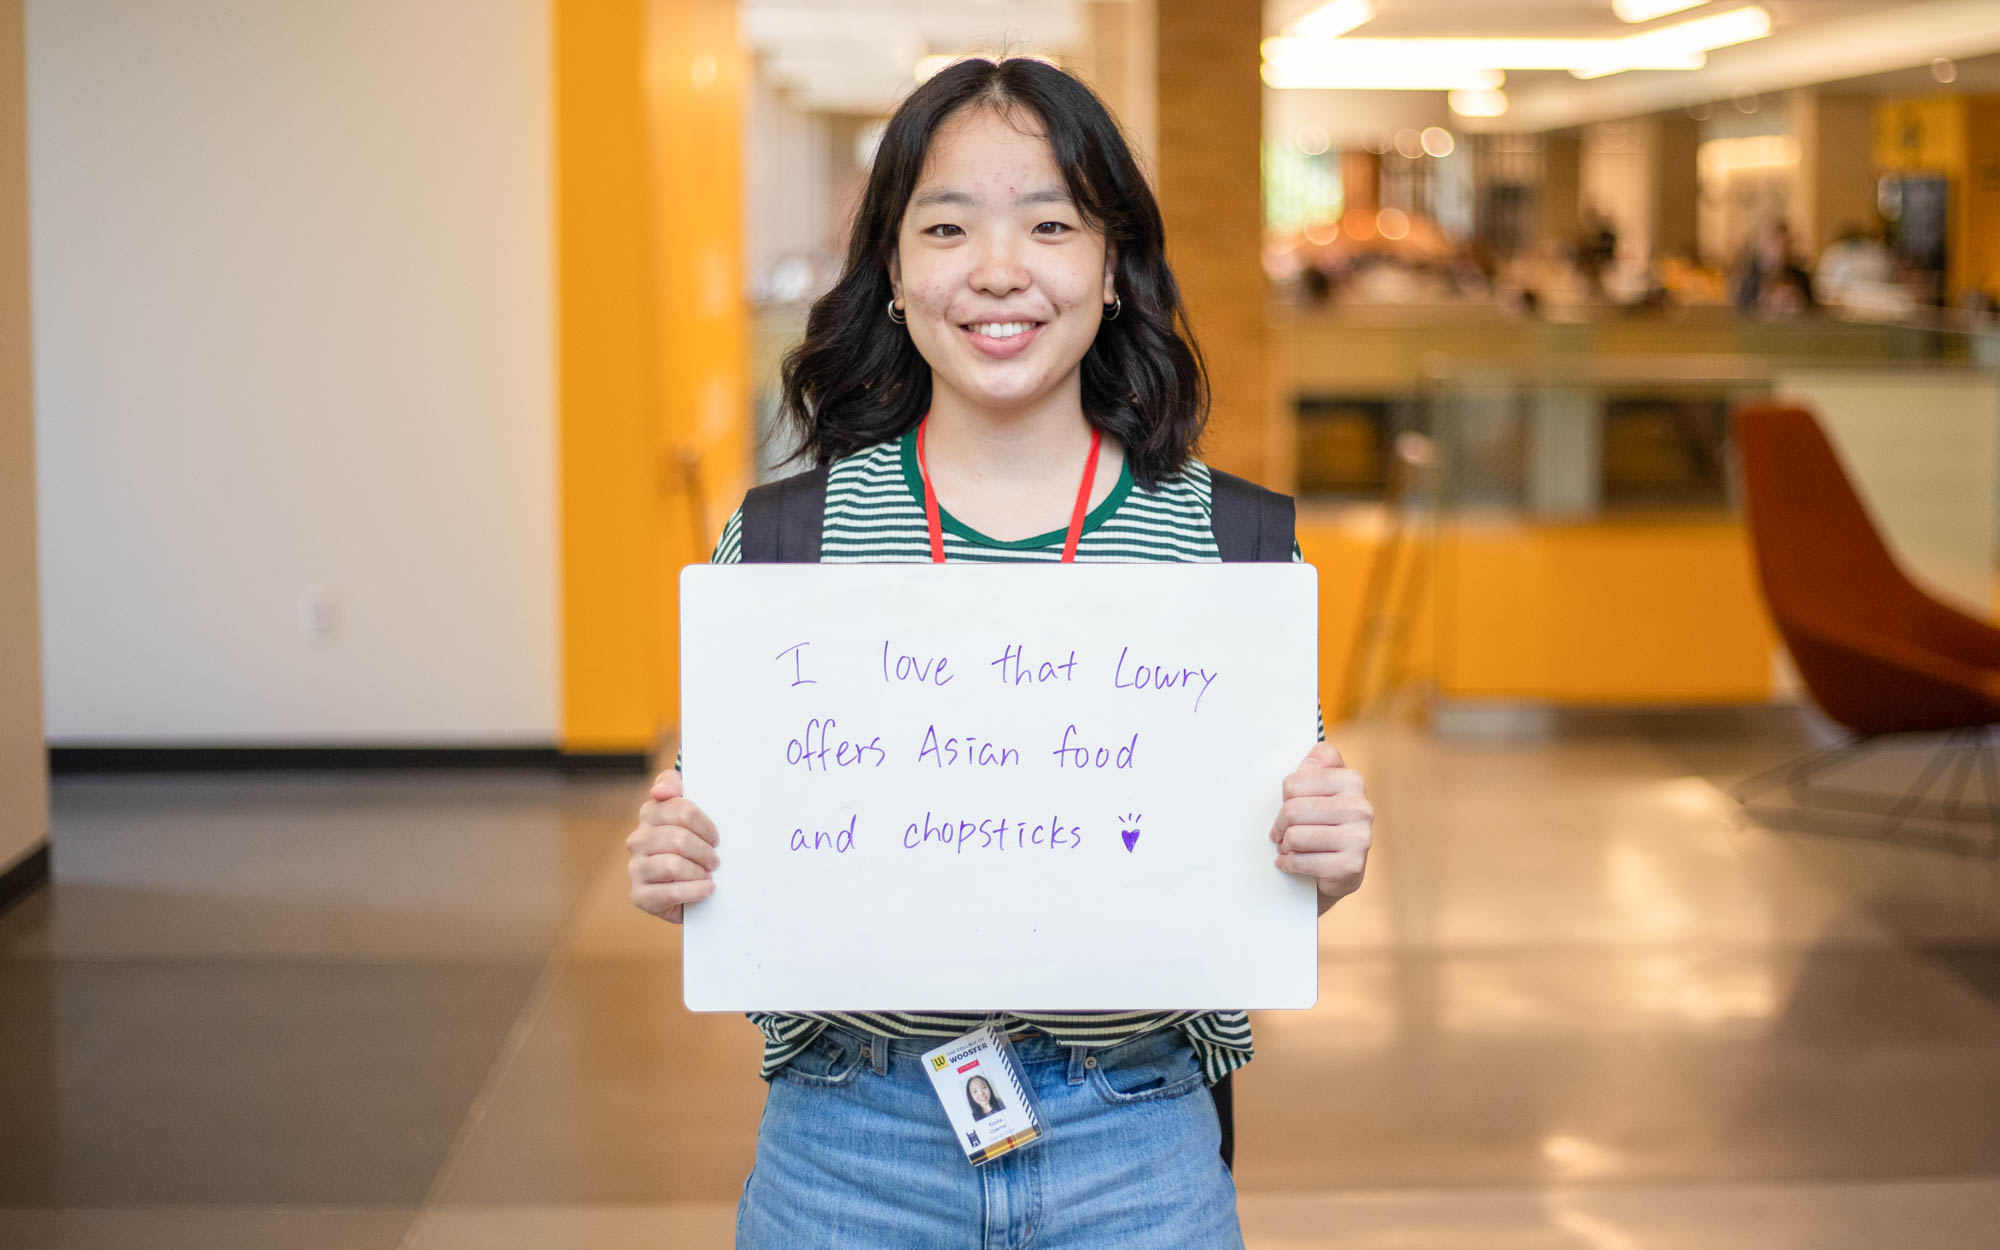 I love that Lowry
offers Asian food
and chopsticks
W
THE COLLEGE OF
WOOSTER
STUDENT